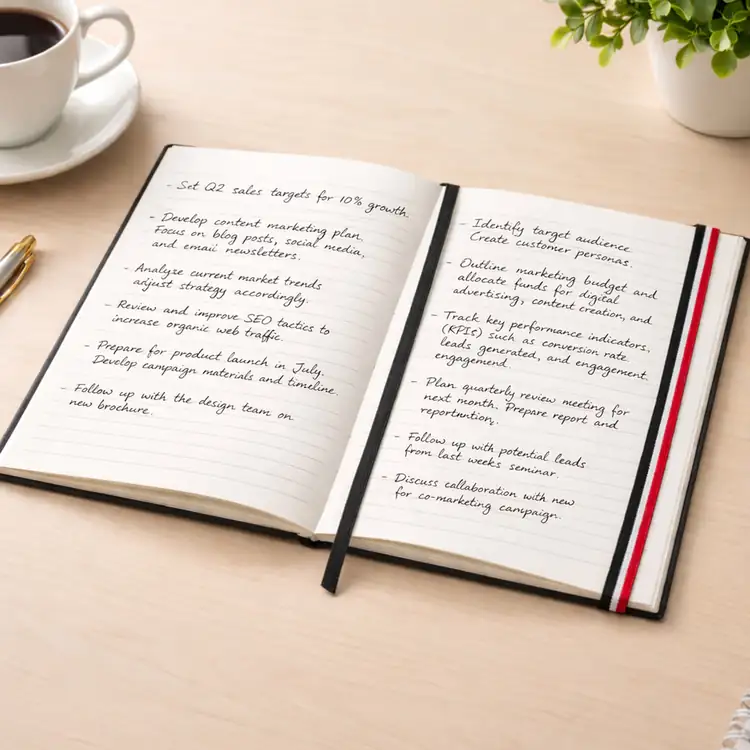 - Set Q2 sales targets for 10% growth.
- Develop content marketing plan.
Focus on blog posts, social media,
and email newsletters.
- Analyse current market trends
adjust strategy accordingly.
- Review and improve SEO tactics to
increase organic web traffic.
- Prepare for product launch in July.
Develop campaign materials and timeline.
- Follow up with the design team on
new brochure.
- Identify target audience
Create customer personas.
- Outline marketing budget and
allocate funds for digital
advertising, content creation, and
- Track key performance indicators,
(KPIs) such as conversion rate
leads generated, and engagement.
engagement.
- Plan quarterly review meeting for
next month. Prepare report and
- Follow up with potential leads
from last weeks seminar.
- Discuss collaboration with new
for co-marketing campaign.